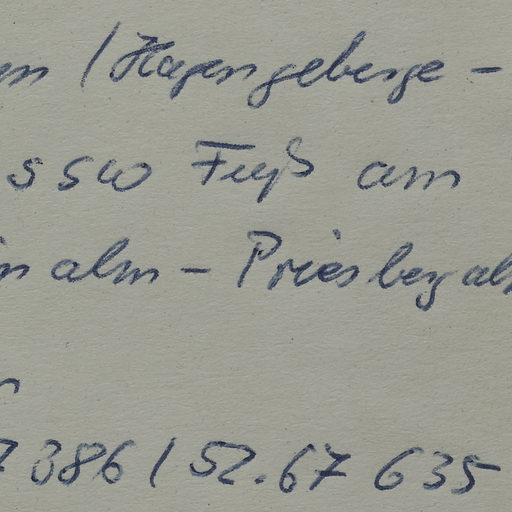 / Hagengebirge -
SSW Fuß am
alm - Priesbergal
386 / 52.67 635